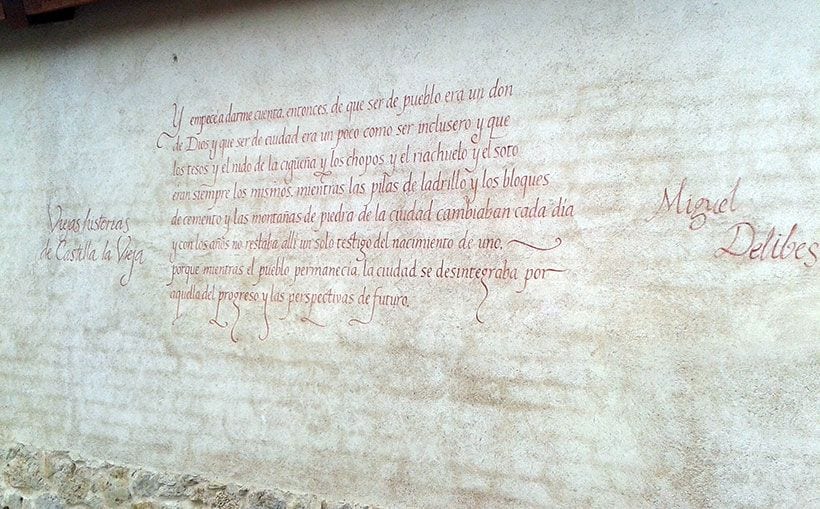 Viejas historias
de Castilla la Vieja
Y empecé a darme cuenta, entonces, de que ser de pueblo era un don
de Dios y que ser de ciudad era un poco como ser inclusero y que
los tesos y el nido de la cigüeña y los chopos y el riachuelo y el soto
eran siempre los mismos, mientras las pilas de ladrillo y los bloques
de cemento y las montañas de piedra de la ciudad cambiaban cada día
y con los años no restaba allí un solo testigo del nacimiento de uno,
porque mientras el pueblo permanecía, la ciudad se desintegraba por
aquello del progreso y las perspectivas de futuro.
Miguel
Delibes